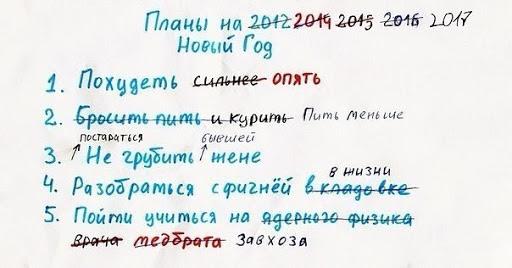 Планы на 2012 2014 2015 2016 2017
Новый Год
1. Похудеть сильнее опять
2. Бросить пить и курить Пить меньше
постараться бывшей
3. Не грубить жене
в жизни
4. Разобраться с фигнёй в кладовке
5. Пойти учиться на ядерного физика
врача медбрата завхоза